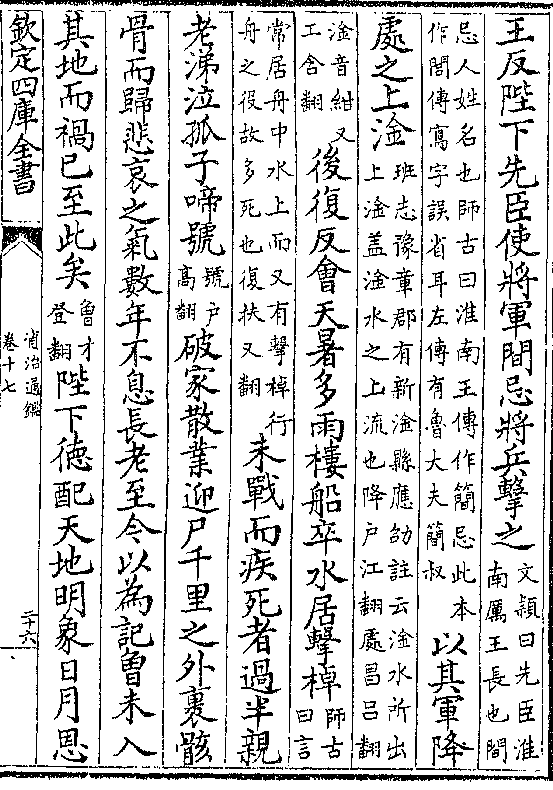 王反陛下先臣使將軍間忌將兵擊之文穎曰先臣淮南厲王長也間
忌人姓名也師古曰淮南王傳作簡忌此本作間傳寫字誤省耳左傳有魯大夫簡叔以其軍降
處之上淦班志豫章郡有新淦縣應劭註云淦水所出上淦盖淦水之上流也降户江翻處昌吕翻
淦音紺又工含翻後復反會天暑多雨樓船卒水居擊棹師古曰言
常居舟中水上而又有擊棹行舟之役故多死也復扶又翻未戰而疾死者過半親
老涕泣孤子啼號號户高翻破家散業迎尸千里之外裹骸
骨而歸悲哀之氣數年不息長老至今以為記曾未入
其地而禍已至此矣曾才登翻陛下徳配天地明象日月恩
欽定四庫全書
資治通鑑
卷十七
二十六